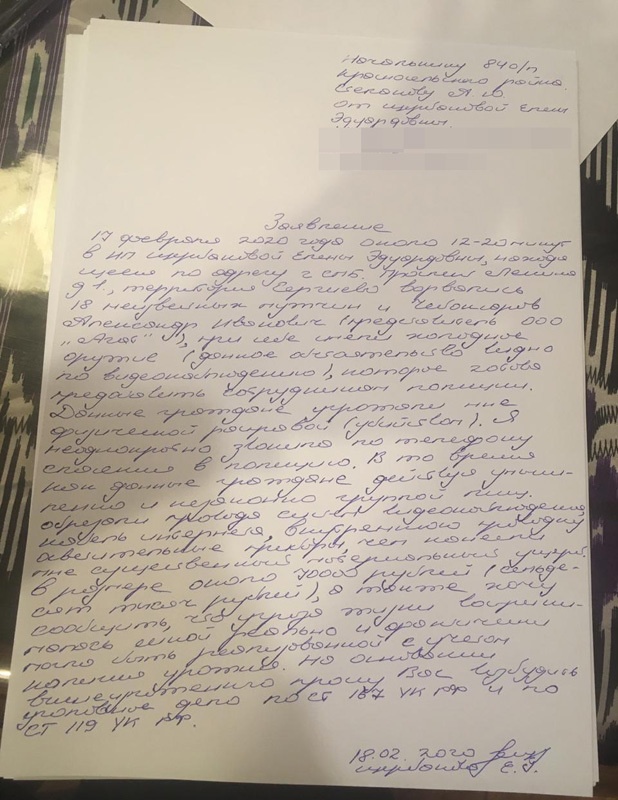 Начальнику 84 о/п
Красносельского района
А Ю
от Щербаковой Елены
Эдуардовны.
Заявление
17 февраля 2020 года около 12-20 минут
в НП Щербаковой Елены Эдуардовны, находя
щееся по адресу г СПБ. Ленина
д 1, территория Сергиево ворвались
18 неизвестных мужчин и
Александр Иванович (представитель ООО
при себе имели холодное
оружие (данное обстоятельство видно
по видеонаблюдению), которое готова
предоставить сотрудникам полиции.
Данные граждане угрожали мне
физической расправой (убийством). Я
неоднократно звонила по телефону
спасения в полицию. В то время
как данные граждане действуя умыш-
ленно и незаконно группой лиц.
обрезали провода видеонаблюдения
кабель интернета, внутреннюю проводку
осветительные приборы, чем нанесли
мне существенный материальный ущерб.
в размере около 70000 рублей (семьде-
сят тысяч рублей), а также хочу
сообщить, что угроза жизни восприни-
малась мной реально и фактически
могла быть реализованной с учетом
наличия оружия. На основании
вышеизложенного прошу Вас возбудить
уголовное дело по ст 167 УК РФ и по
СТ 119 УК РФ.
18.02. 2020
Е. Э.